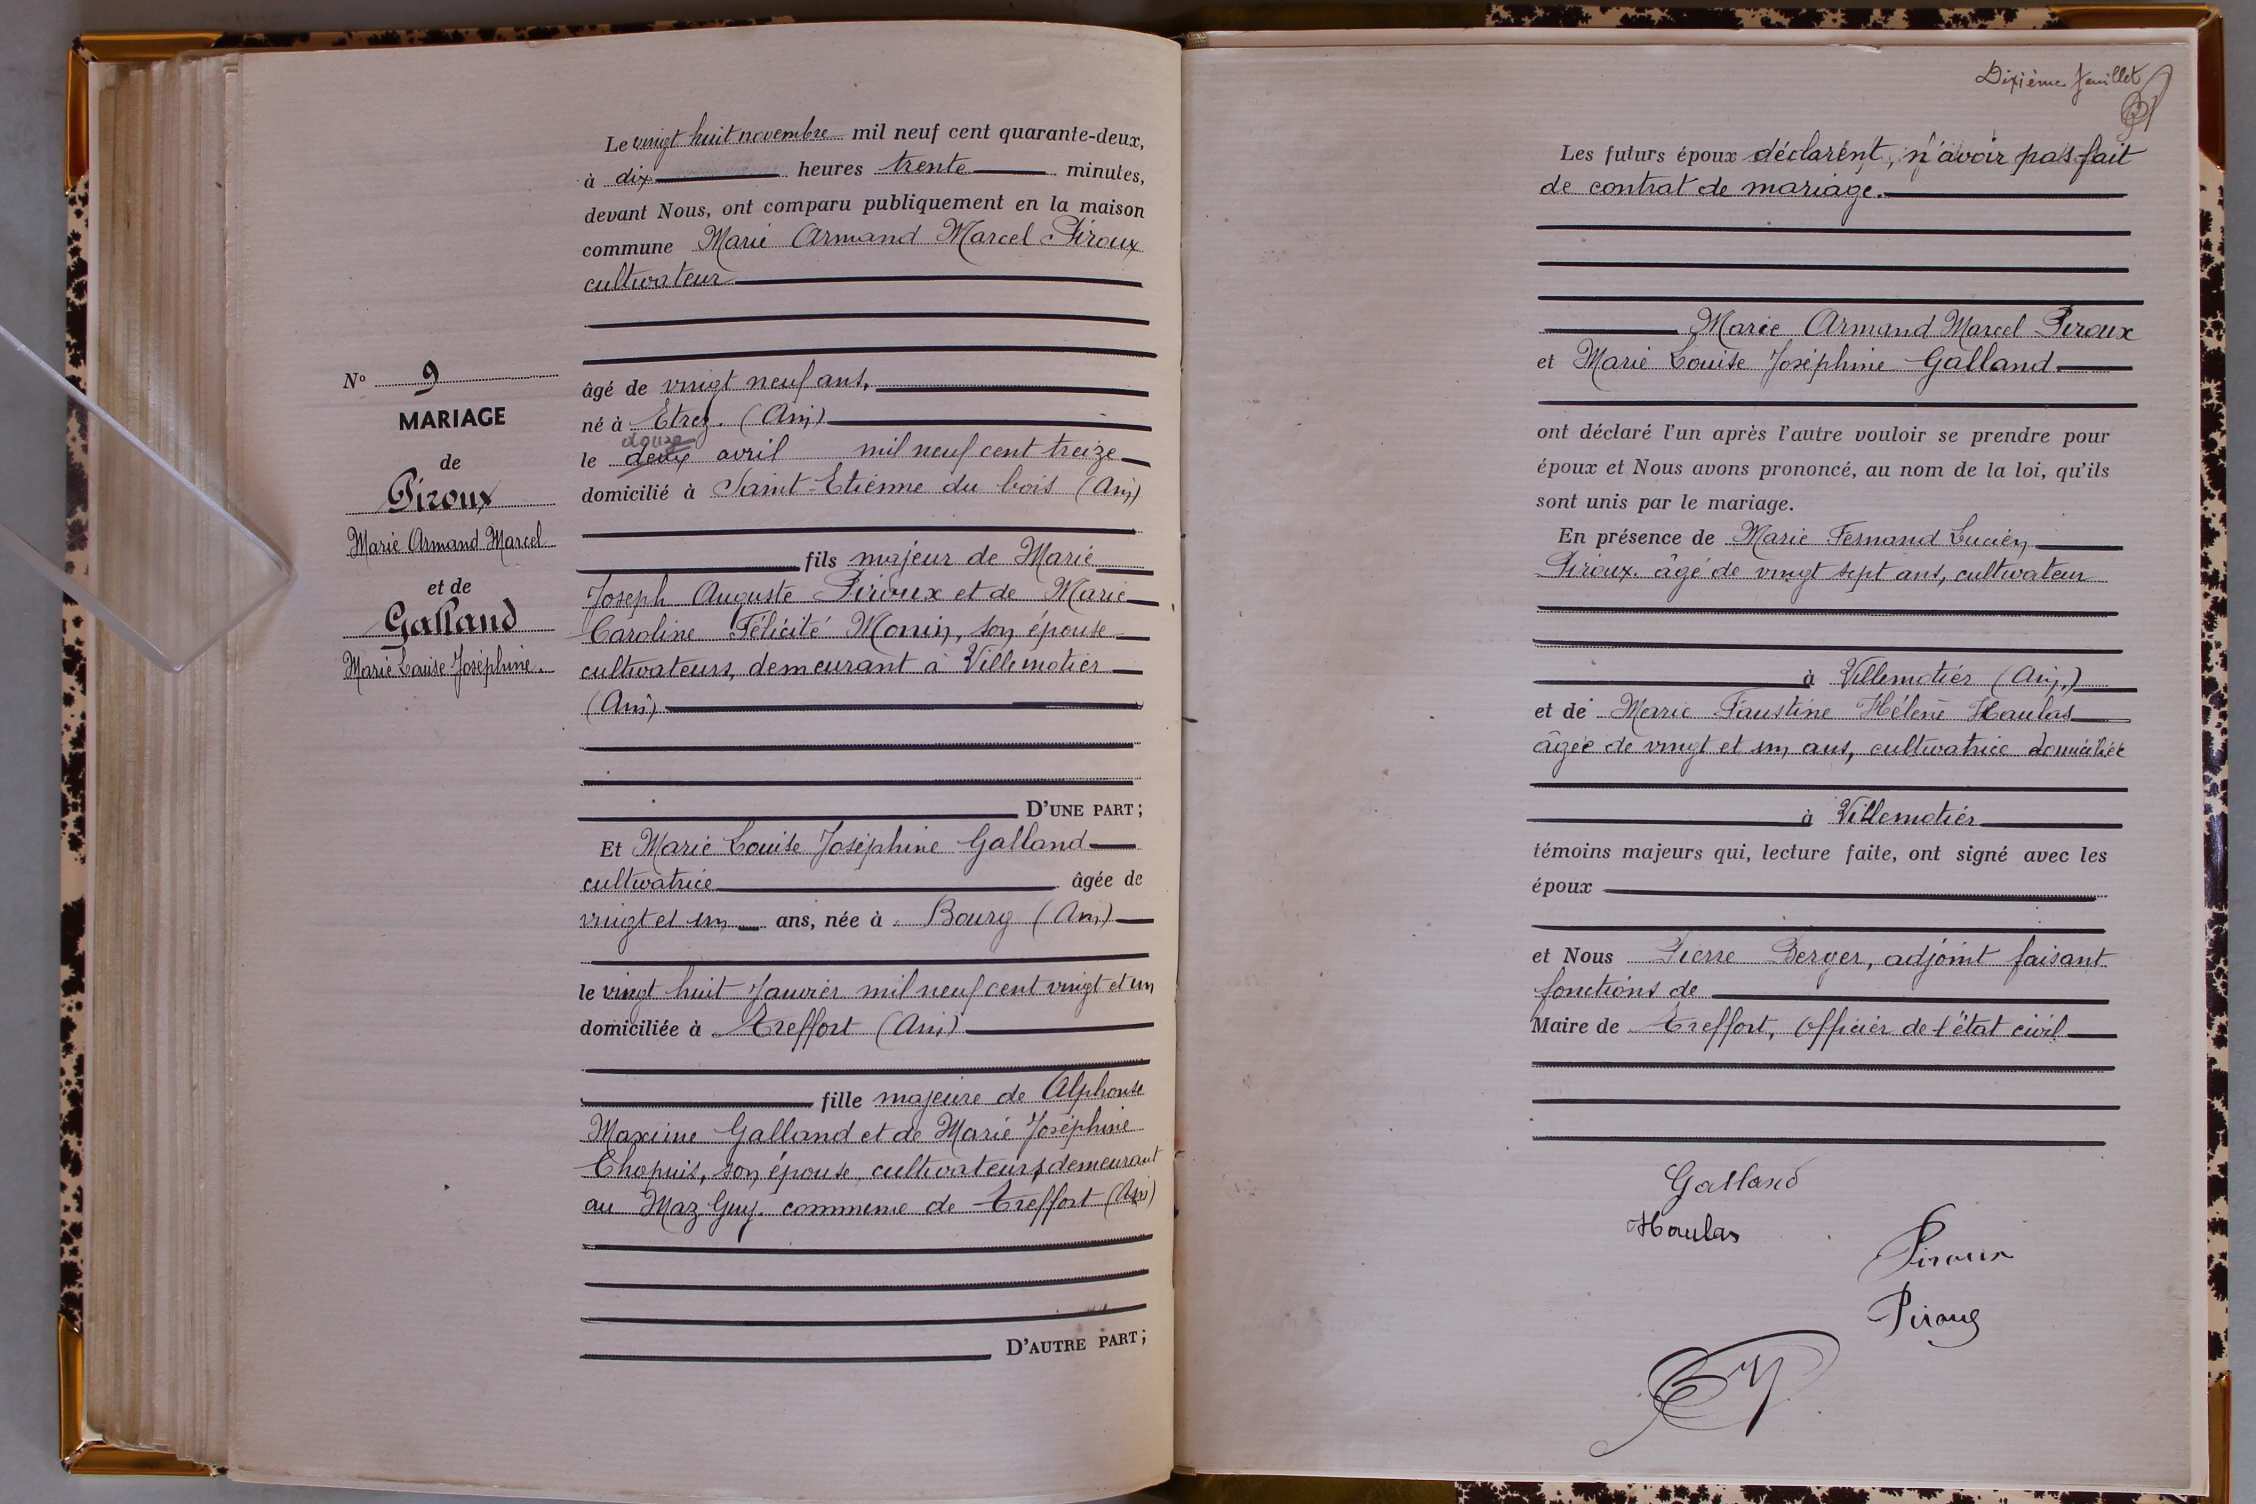 Le vingt huit novembre mil neuf cent quarante-deux,
à dix heures trente minutes,
devant Nous, ont comparu publiquement en la maison
commune Marie Armand Marcel Piroux
cultivateur
âgé de vingt neuf ans,
né à Etrez. (Ain)
douze
le deux avril mil neuf cent treize
domicilié à Saint-Etienne du bois (Ain)
fils majeur de Marie
Joseph Auguste Piroux et de Marie
Caroline Félicité Monin, son épouse
cultivateurs, demeurant à Villemotier
(Ain)
D'UNE PART;
Et Marie Louise Joséphine Galland
cultivatrice âgée de
vingt et un ans, née à Bourg (Ain)
le vingt huit Janvier mil neuf cent vingt et un
domiciliée à Treffort (Ain)
fille majeure de Alphonse
Maxime Galland et de Marie Joséphine
Chapuis, son épouse, cultivateurs, demeurant
au Maz Guy. commune de Treffort (Ain)
D'AUTRE PART;
N° 9
MARIAGE
de
Piroux
Marie Armand Marcel
et de
Galland
Marie Louise Joséphine.
Dixième feuillet
Les futurs époux déclarent, n'avoir pas fait
de contrat de mariage.
Marie Armand Marcel Piroux
et Marie Louise Joséphine Galland.
ont déclaré l'un après l'autre vouloir se prendre pour
époux et Nous avons prononcé, au nom de la loi, qu'ils
sont unis par le mariage.
En présence de Marie Fernand Lucien
Piroux. âgé de vingt sept ans, cultivateur
à Villemotier (Ain.)
et de Marie Faustine Hélène Haulas
âgée de vingt et un ans, cultivatrice domiciliée
à Villemotier
témoins majeurs qui, lecture faite, ont signé avec les
époux
et Nous Pierre Berger, adjoint faisant
fonctions de
Maire de Treffort, Officier de l'état civil
Galland
Haulas
Piroux
Piroux